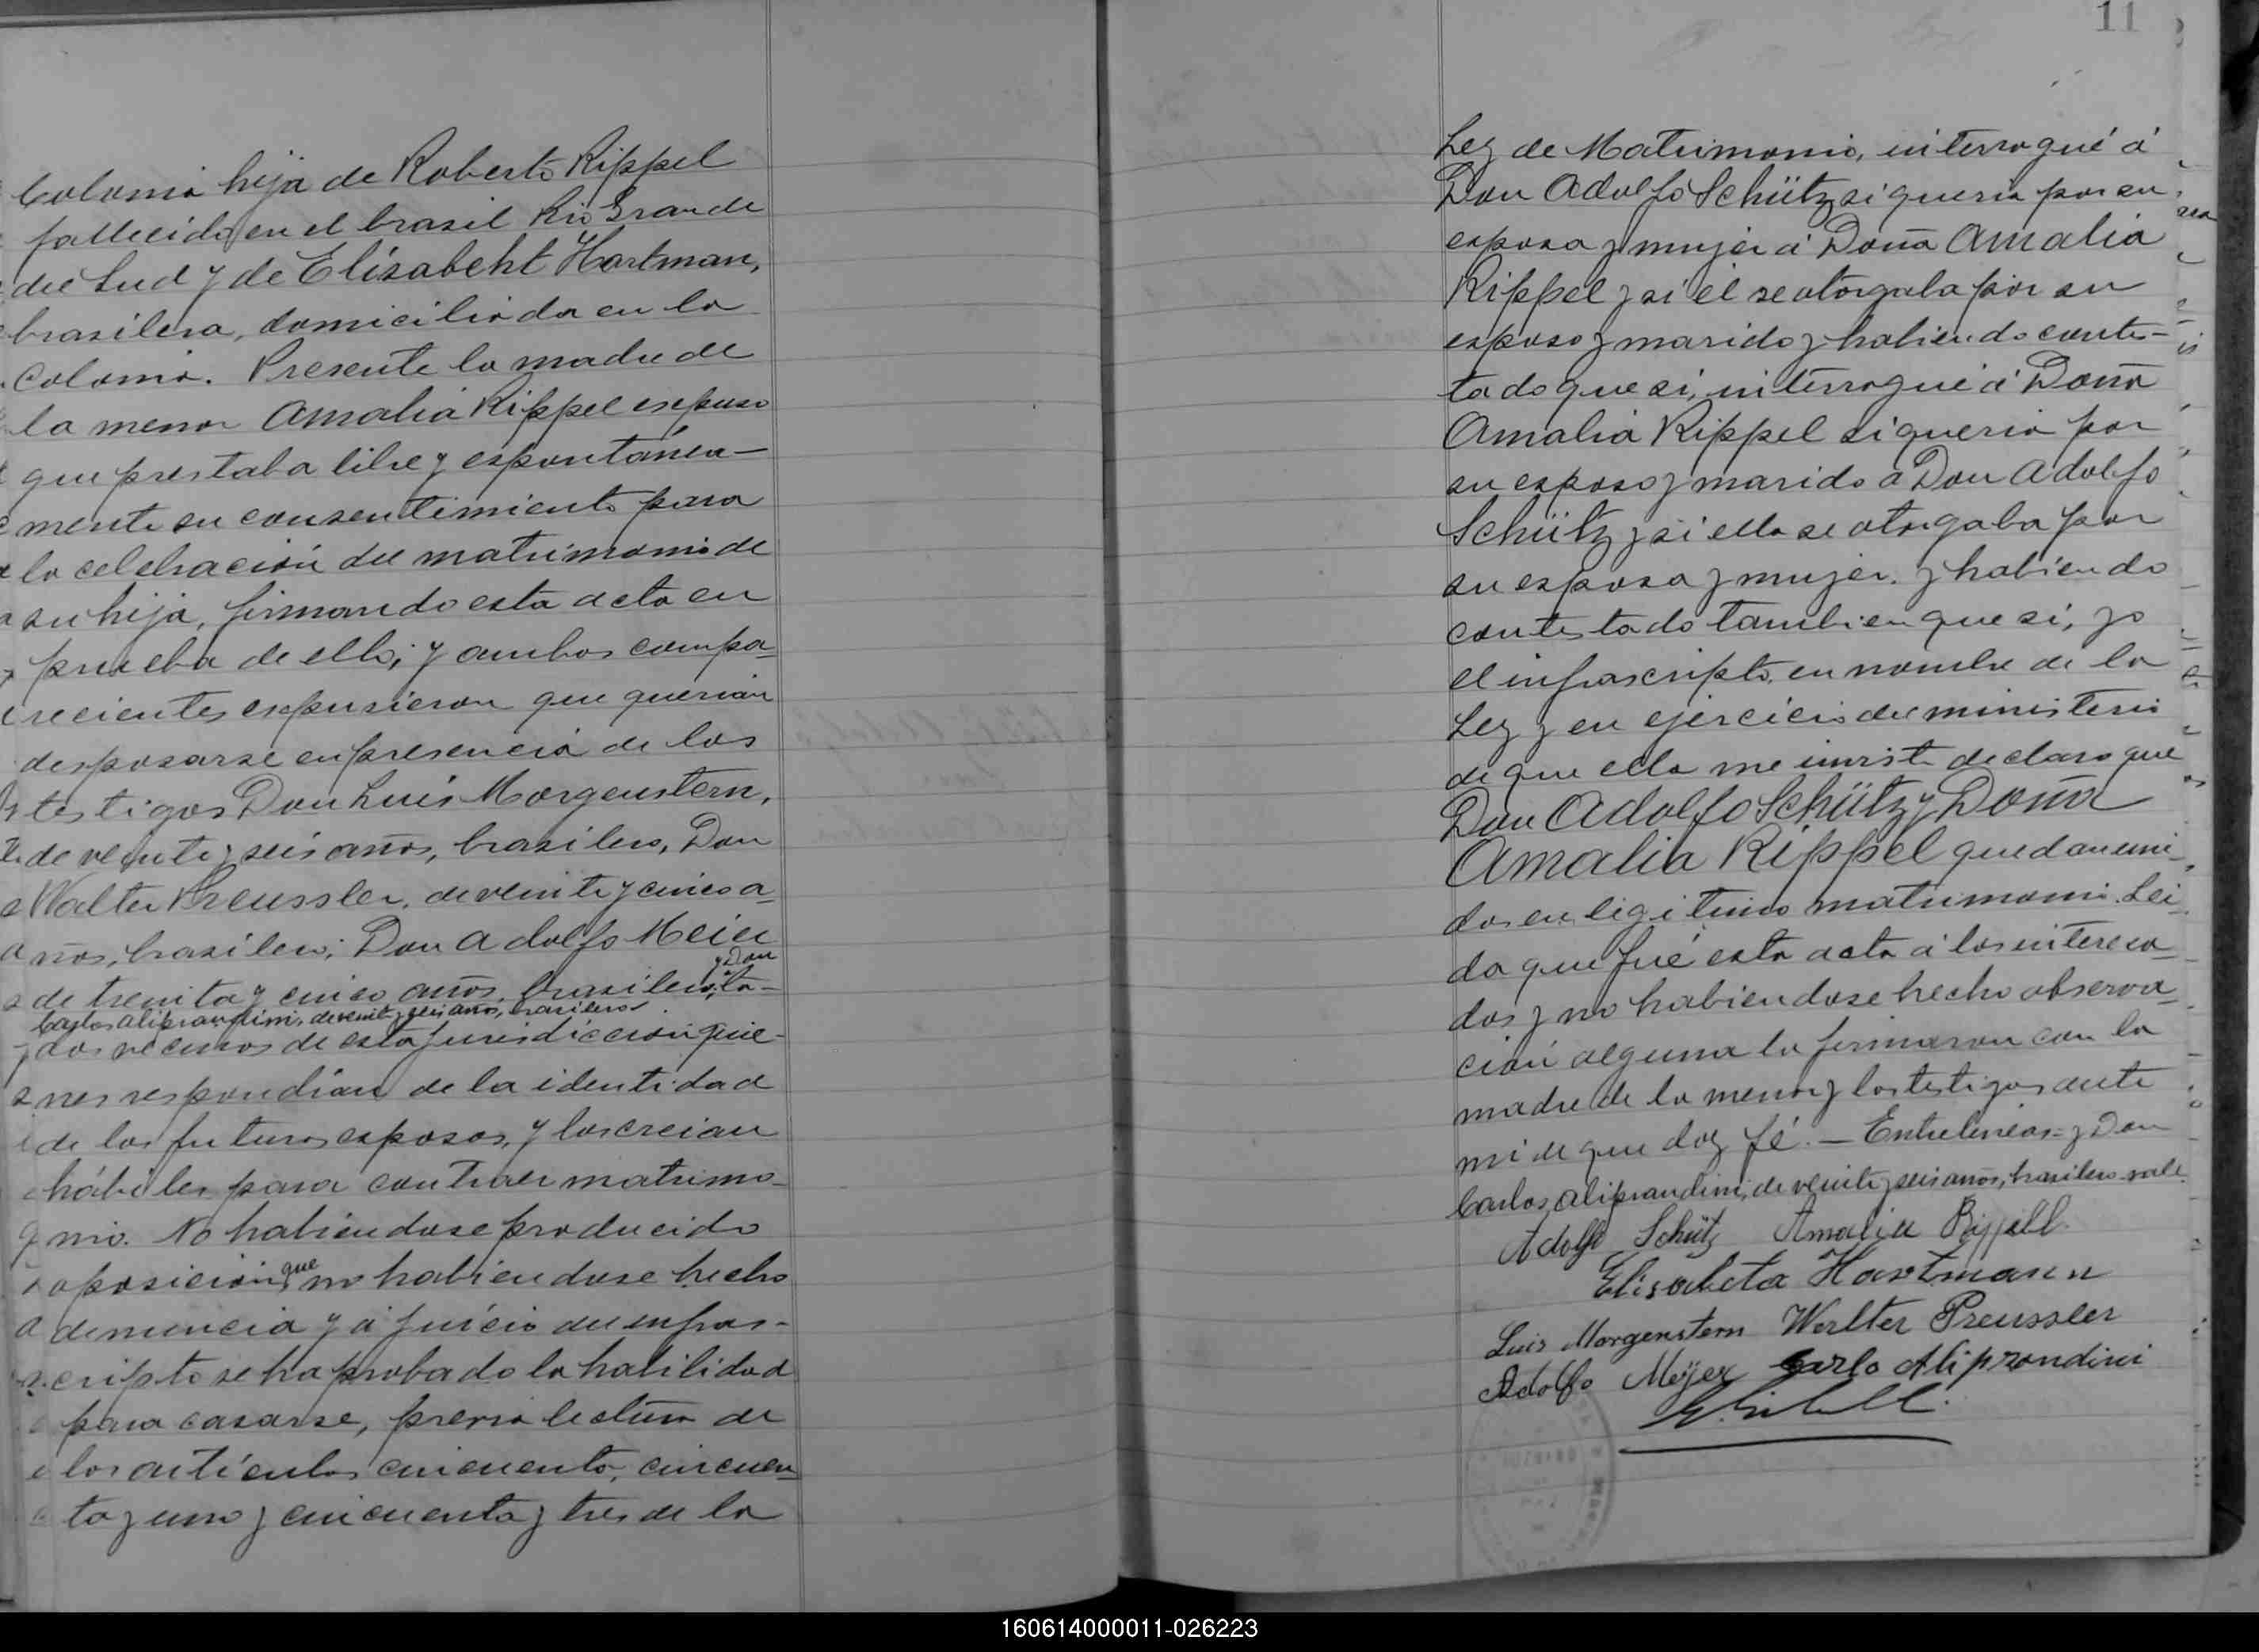 Colonia hija de Roberto Rippel
fallecido en el brasil Rio Grande
del Sud y de Elisabeht Hartman,
brasilera, domiciliada en la
Colonia. Presente la madre de
la menor Amalia Rippel expuso
que prestaba libre y espontánea-
mente su consentimiento para
la celebracion del matrimonio de
su hija, firmando esta acta en
prueba de ello; y ambos compa-
recientes expusieron que querian
desposarse en presencia de los
testigos Don Luis Morgenstern,
de veinte y seis años, brasilero, Don
Walter Preussler, de veinte y cinco a-
ños, brasilero; Don Adolfo Meier
y Don
de treinta y cinco años, brasilero, to-
Carlos Aliprandini, de veinte y seis años, brasilero
dos vecinos de esta jurisdiccion quie-
nes respondian de la identidad
de los futuros esposos, y los creian
hábiles para contraer matrimo-
nio. No habiendose producido
oposicion que no habiendose hecho
denuncia y á juicio del infras-
cripto se ha probado la habilidad
para casarse, previa lectura de
los artículos cincuenta, cincuen-
ta y uno y cincuenta y tres de la
11
Ley de Matrimonio, interrogué á
Don Adolfo Schütz si queria por su
esposa y mujer á Doña Amalia
Rippel y si él se otorgaba por su
esposo y marido y habiendo contes-
tado que si, interrogué á Doña
Amalia Rippel si queria por
su esposo y marido a Don Adolfo
Schütz y si ella se otorgaba por
su esposa y mujer. y habiendo
contestado tambien que si, yo
el infrascripto en nombre de la
Ley y en ejercicio del ministerio
de que ella me inviste declaro que
Don Adolfo Schütz y Doña
Amalia Rippel quedan uni-
dos en legitimo matrimonio. Lei-
da que fué esta acta á los interesa-
dos y no habiendose hecho observa-
cion alguna la firmaron con la
madre de la menor y los testigos ante
mi de que doy fé. — Entrelineas = y Don
Carlos Aliprandini, de veinte y seis años, brasilero vale.
Adolfo Schütz Amalia Rippell.
Elisabeta Hartmann
Luis Morgenstern Walter Preussler
Adolfo Meÿer Carlo Aliprandini
160614000011-026223